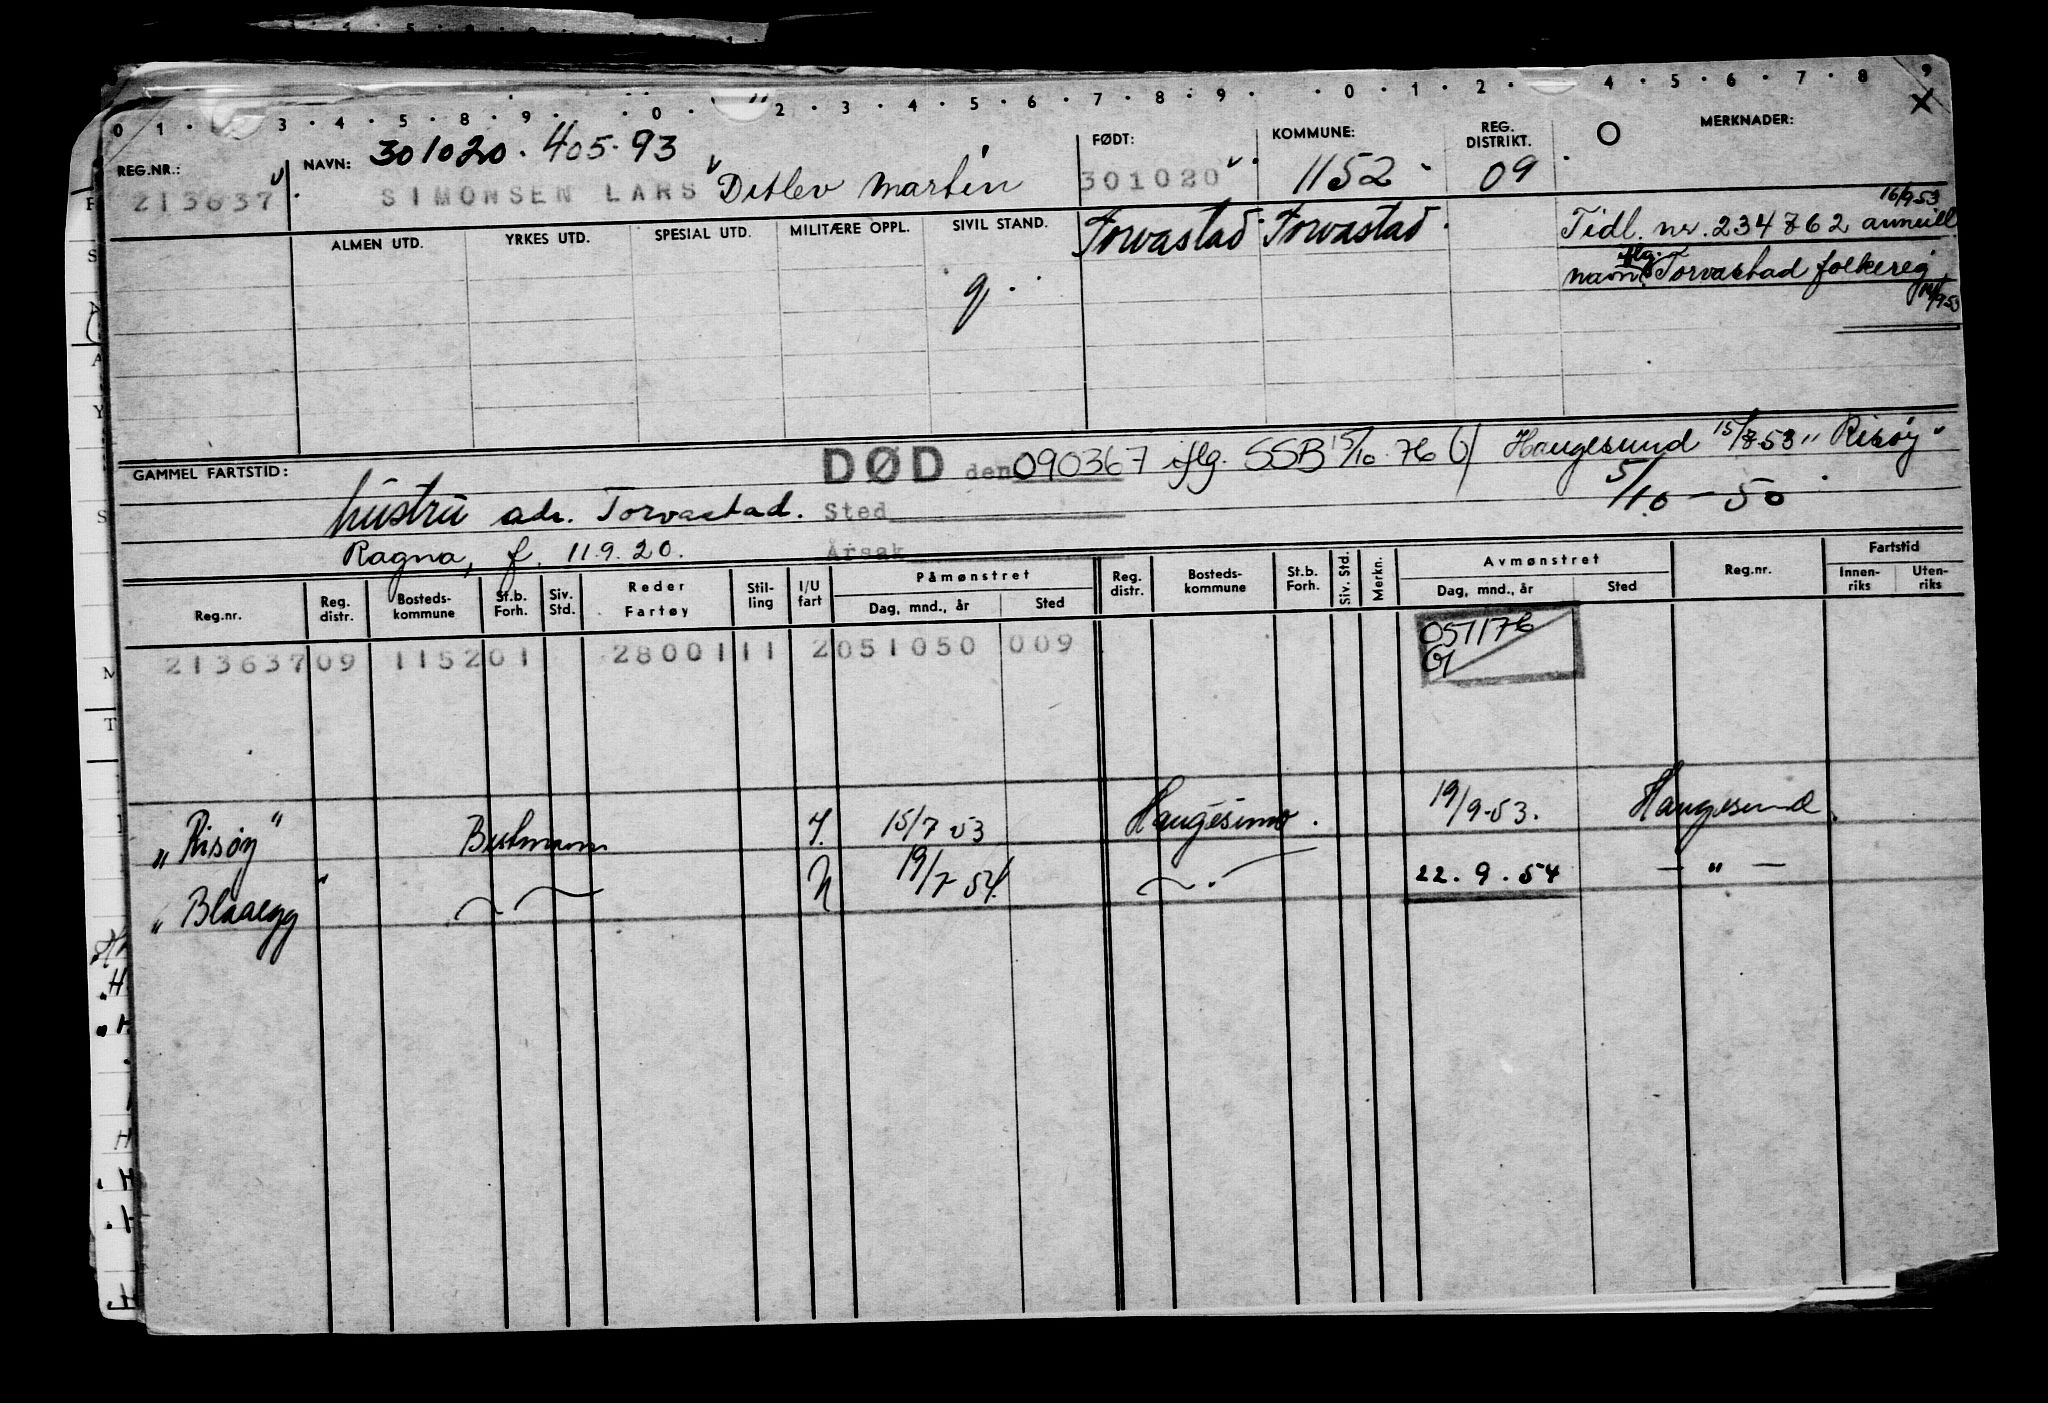 0 1 · 3 · 4 · 5 · 8 · 9 · · 0 · 2 · 3 · 4 · 5 · 6 · 7 · 8 · 9 · · 0 · 1 · 2 · 4 · 5 · 6 · 7 · 8 9
X
REG.NR.: NAVN: 301020. 405.93 FØDT: KOMMUNE: REG. DISTRIKT. O MERKNADER:
213637 SIMONSEN LARS Ditlev Martin 301020 1152 09
16/9-53
ALMEN UTD. YRKES UTD. SPESIAL UTD. MILITÆRE OPPL. SIVIL STAND. Torvastad Torvastad Tidl. nr. 234762 annull.
g. navn iflg. Torvastad folkereg
GAMMEL FARTSTID: DØD den 090367 iflg. SSB 15/10.76 Haugesund 15/7-53 „Risøy"
hustru adr. Torvastad. Sted 5/10-50
Ragna, f. 11.9.20. Årsak
Reg.nr. Reg. distr. Bosteds- kommune St.b. Forh. Siv. Std. Reder Fartøy Stil- ling I/U fart Påmønstret Dag, mnd., år Sted Reg. distr. Bosteds- kommune St.b. Forh. Siv. Std. Merkn. Avmønstret Dag, mnd., år Sted Reg.nr. Fartstid Innen- riks Uten- riks
213637 09 1152 01 28001 11 2 051050 009 051176
„Risøy" Bestmann 15/7 53 Haugesund. 19/9-53. Haugesund.
„Blaaegg" 19/7 54 22.9.54 — „ —